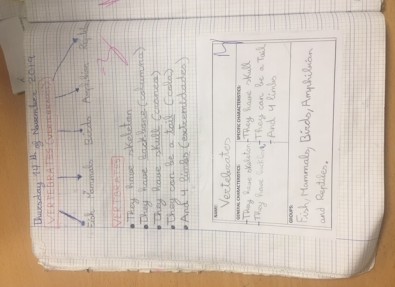 Thursday 14th of November 2019
VERTEBRATES (VERTEBRADOS)
Fish Mammals Birds Amphibian Reptile
VERTEBRATES
• They have skeleton
• They have backbone (columna)
• They have skull (craneo)
• They can be a tail (cola)
• And 4 limbs (extremidades)
NAME:
Vertebrates
GENERAL CHARACTERISTICS:
- They have skeleton
- They have
SPECIFIC CHARACTERISTICS:
- They have skull
- They can be a Tail
- And 4 limbs
GROUPS:
Fish, Mammals, Birds, Amphibian
and Reptiles.